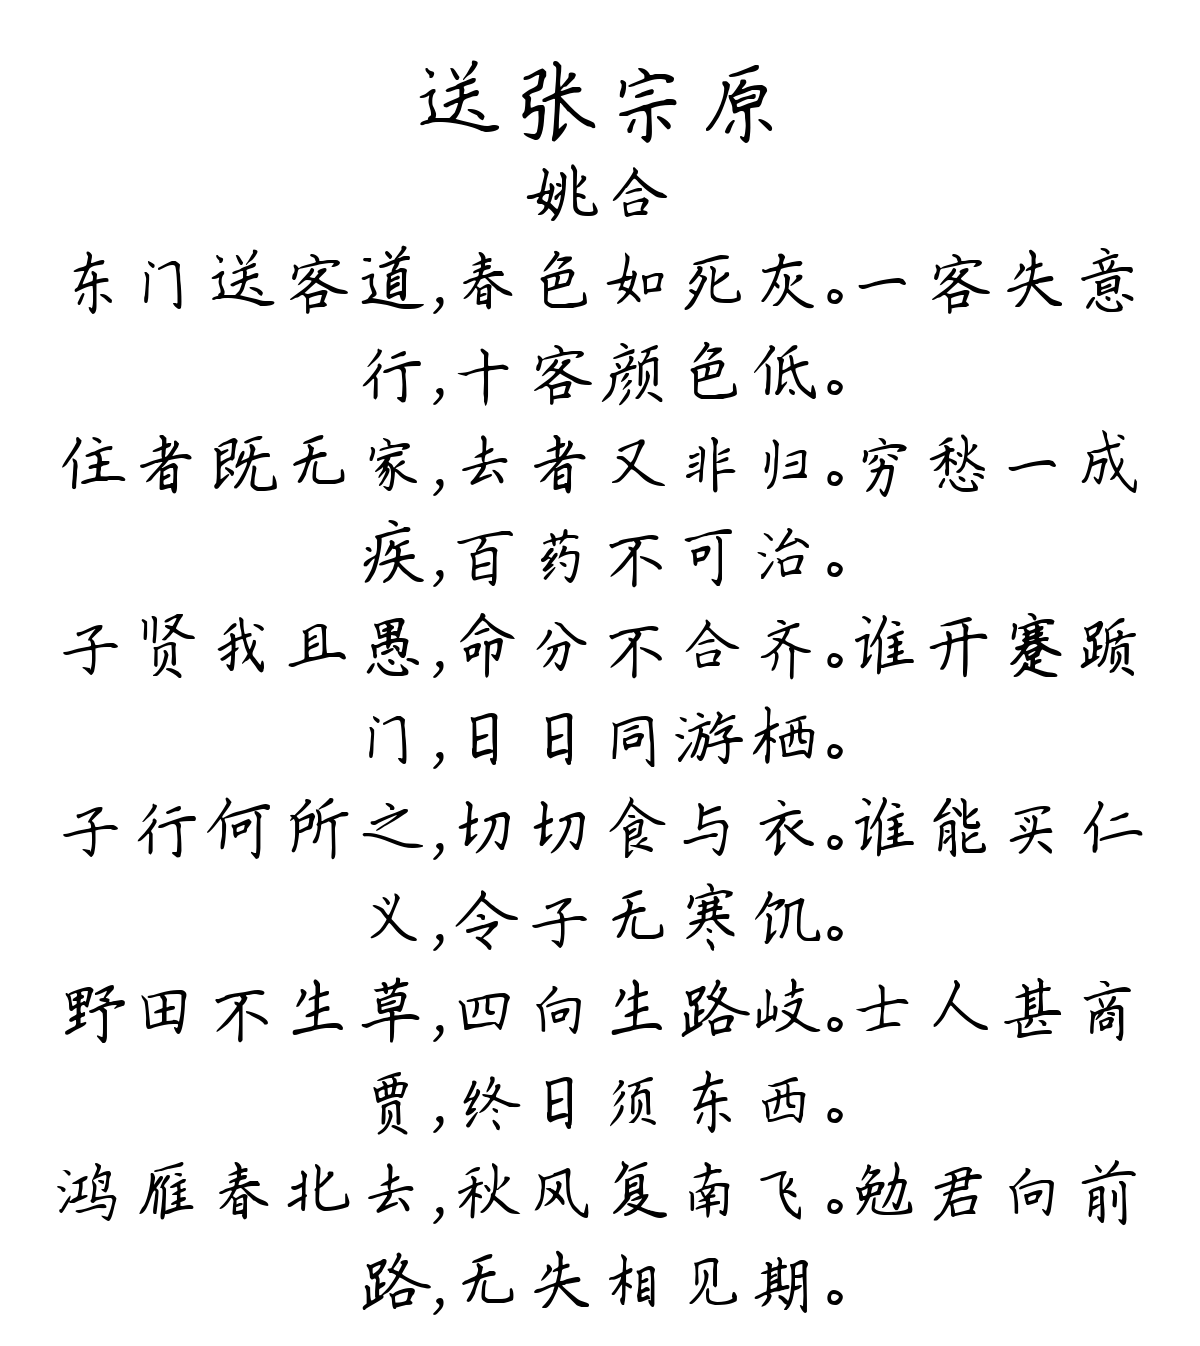 送张宗原
姚合
东门送客道,春色如死灰。一客失意
行,十客颜色低。
住者既无家,去者又非归。穷愁一成
疾,百药不可治。
子贤我且愚,命分不合齐。谁开蹇踬
门,日日同游栖。
子行何所之,切切食与衣。谁能买仁
义,令子无寒饥。
野田不生草,四向生路岐。士人甚商
贾,终日须东西。
鸿雁春北去,秋风复南飞。勉君向前
路,无失相见期。